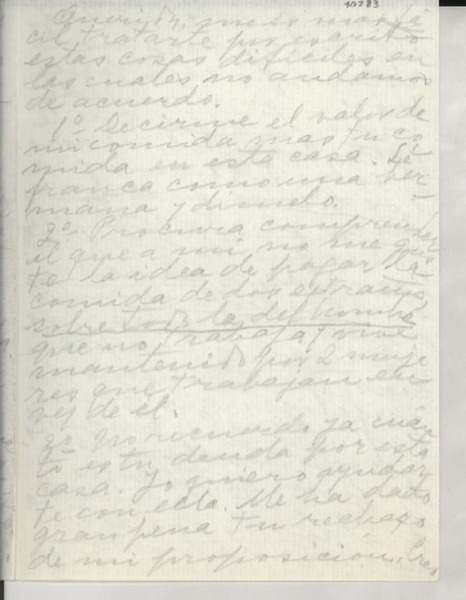 10783
Querida, me es más fá
cil tratarte por escrito
estas cosas difíciles en
las cuales no andamos
de acuerdo.
1º Decirme el valor de
mi comida mas tu co
mida en esta casa. Sé
franca como una her
mana y dímelo.
2º Procura compren
el que a mí no me gus
te la idea de pagar la
comida de dos extraños
sobre todo la del hombre
que no trabaja y vive
mantenido por 2 muje
res que trabajan en
vez de él.
3º No recuerdo ya cuán
to es tu deuda por esta
casa. Yo quiero ayudar
te con ella. Me ha dado
gran pena tu rechazo
de mi proposición. Creo